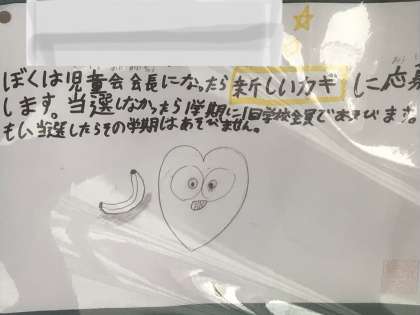 ぼくは児童会会長になったら新しいカギに応
します。当選しなかったら1学期に1回学校全員であそびます。
もし当選したらその学期はあそびません。